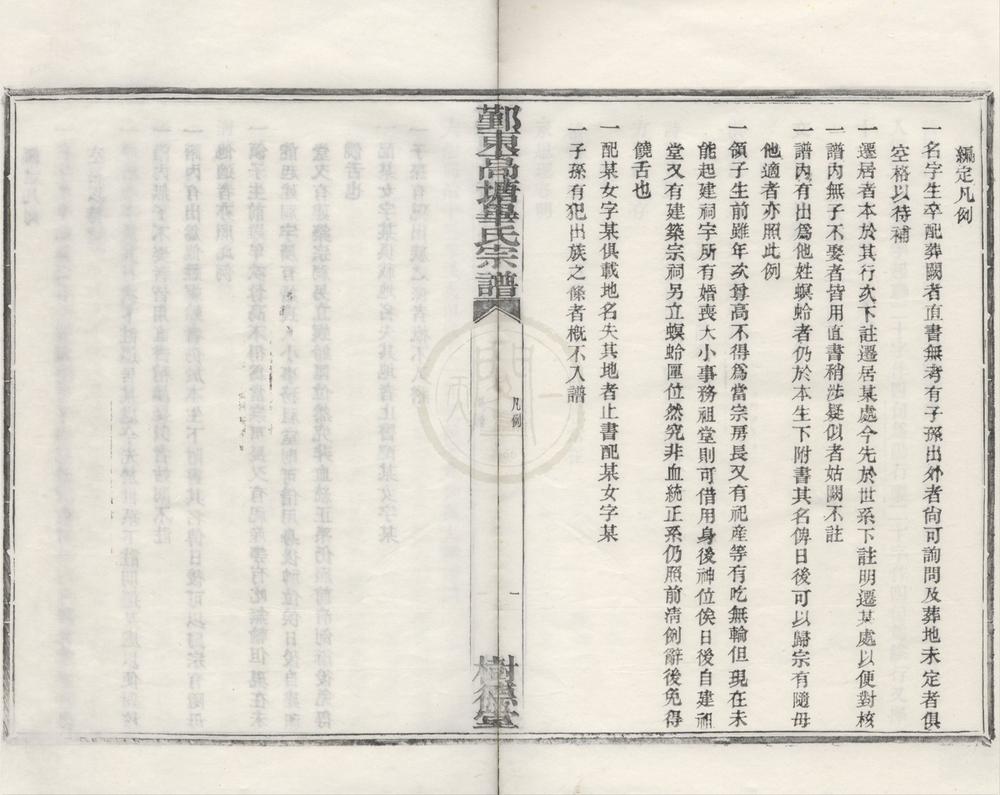 編定凡例
一名字生卒配葬闕者直書無考有子孫出外者尙可詢問及葬地未定者俱
空格以待補
一遷居者本於其行次下註遷居某處今先於世系下註明遷某處以便對核
一譜內無子不娶者皆用直書稍涉疑似者姑闕不註
一譜內有出爲他姓螟蛉者仍於本生下附書其名俾日後可以歸宗有隨母
他適者亦照此例
一領子生前雖年次尊高不得爲當宗房長又有祀產等有吃無輪但現在未
能起建祠宇所有婚喪大小事務祖堂則可借用身後神位俟日後自建祖
堂又有建築宗祠另立螟蛉匣位然究非血統正系仍照前清例辭後免得
饒舌也
一配某女字某俱載地名失其地者止書配某女字某
一子孫有犯出族之條者槪不入譜
鄞東高塘畢氏宗譜
凡例
一
樹德堂